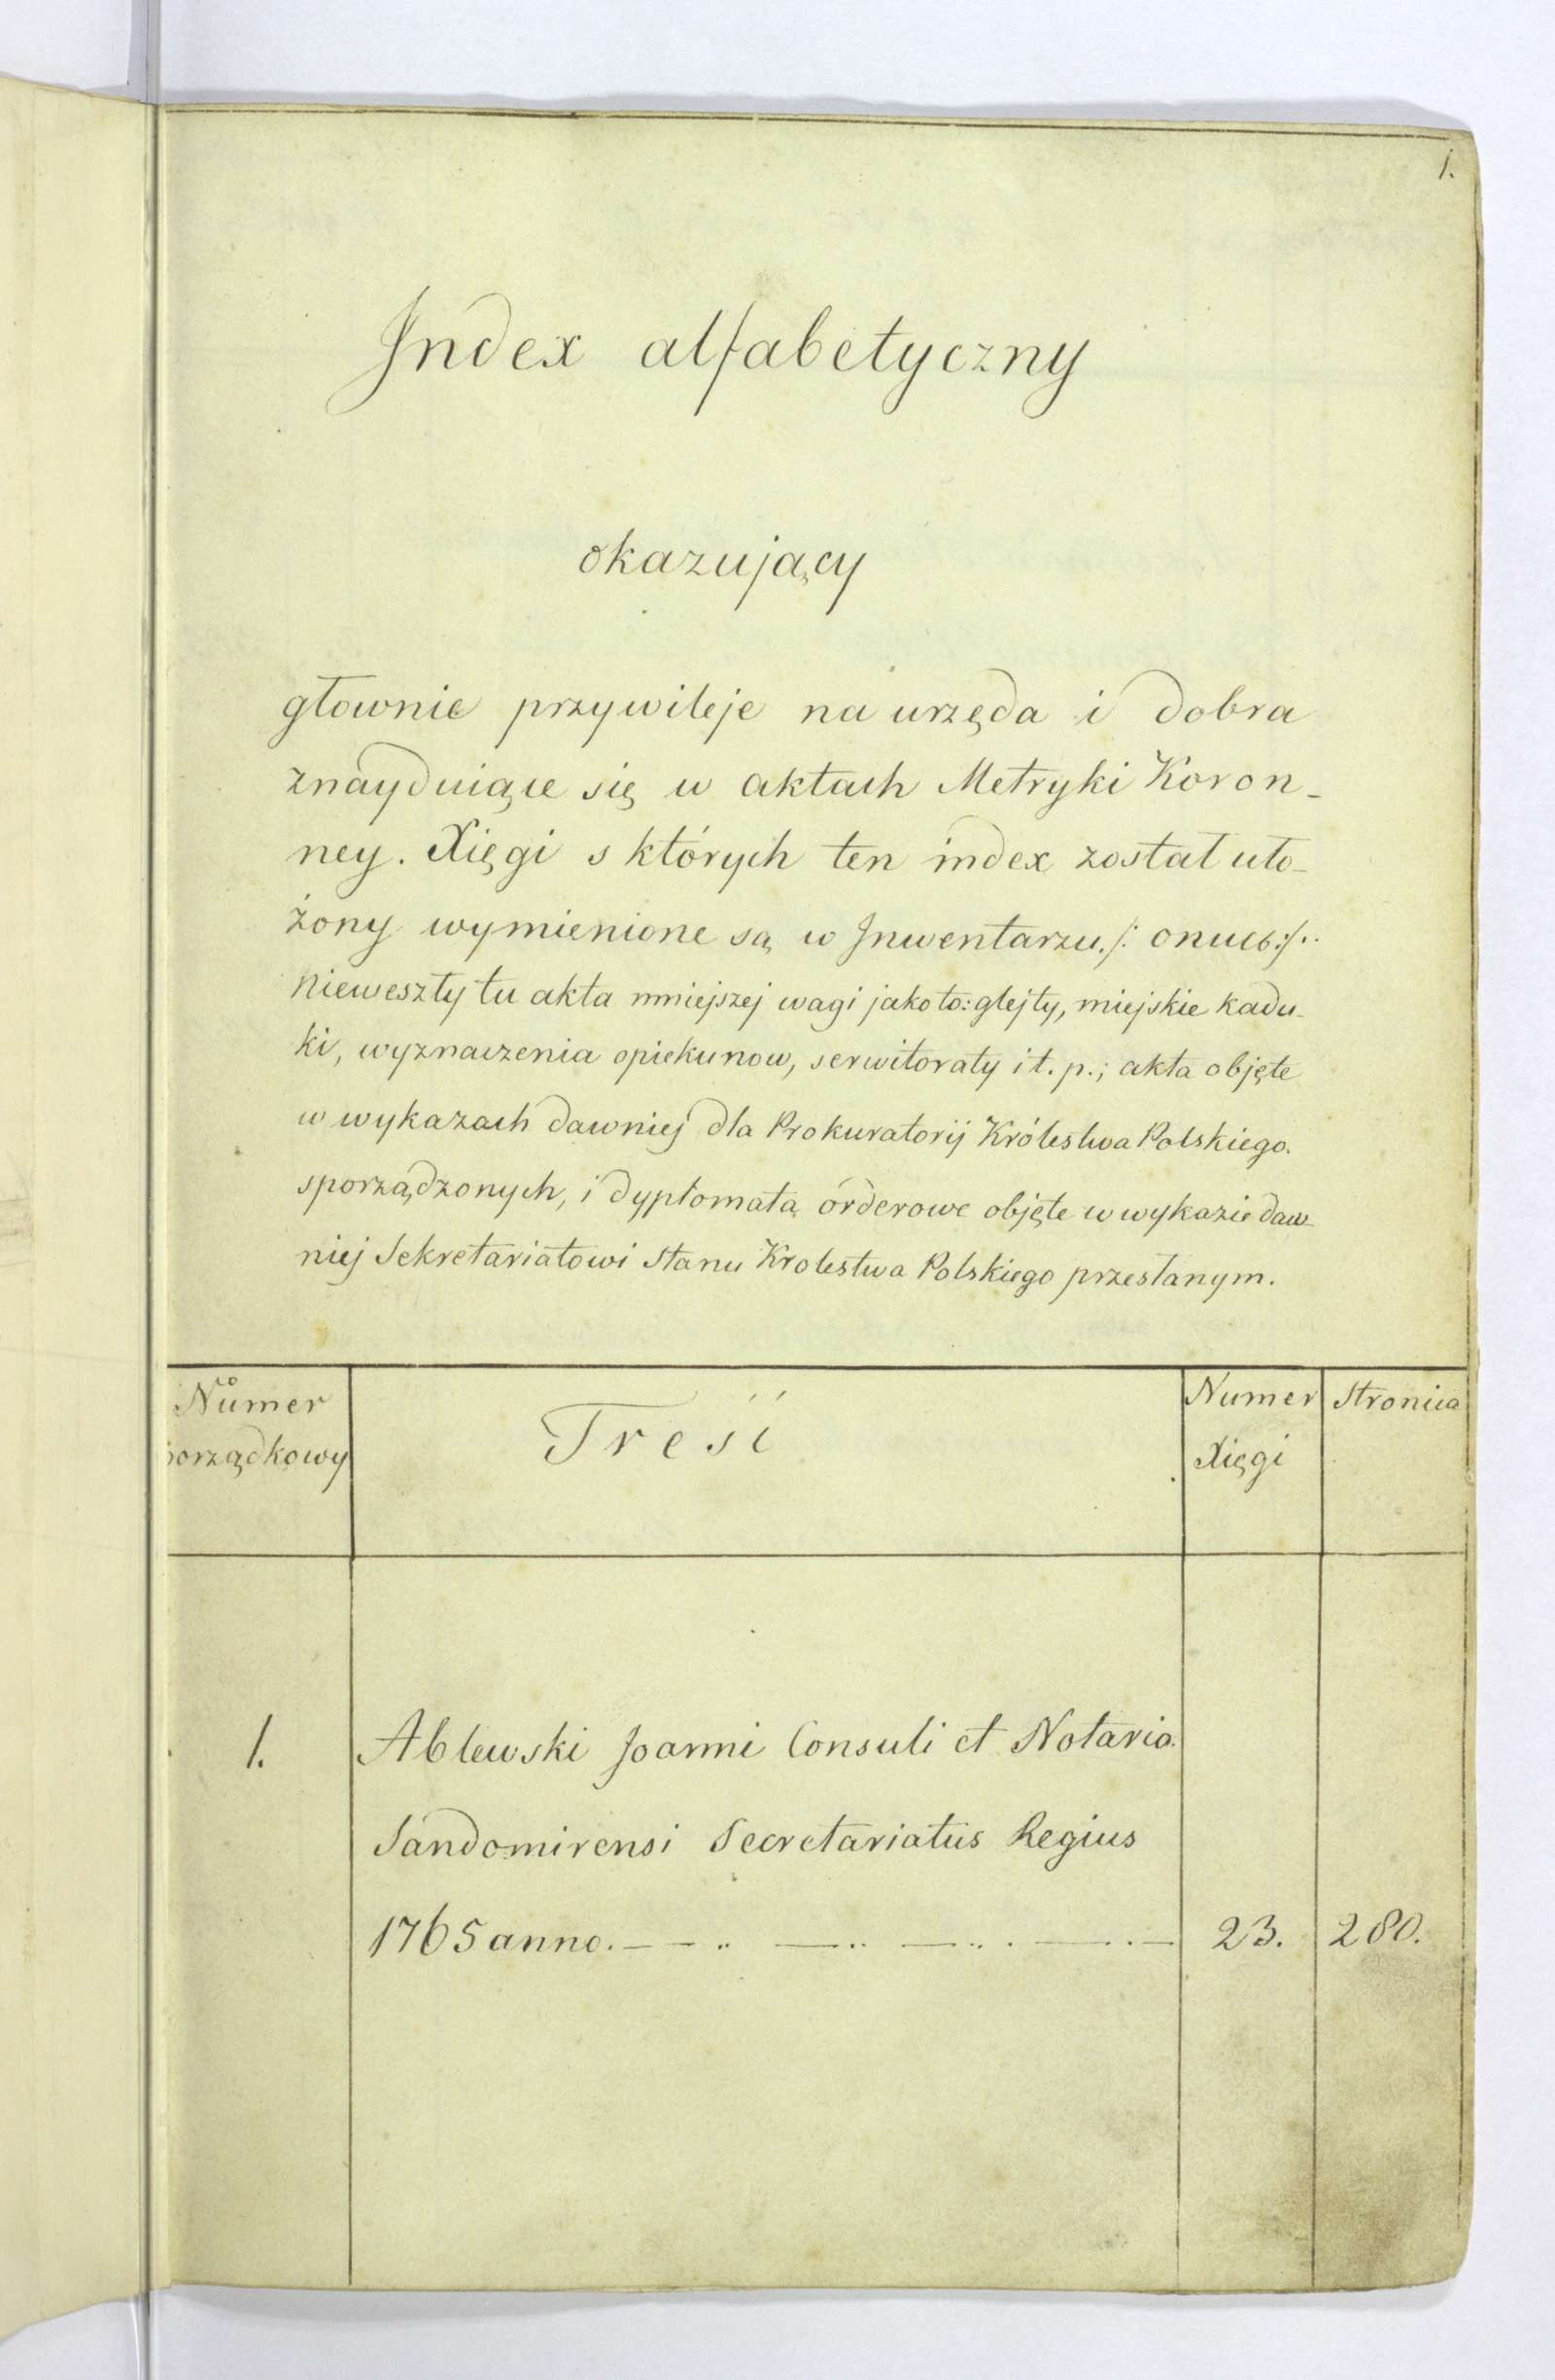 1.
Index alfabetyczny
okazujący
głownie przywileje na urzęda i dobra
znayduiące się w aktach Metryki Koron-
ney. Xięgi s których ten index został uło-
żony wymienione są w Inwentarzu /: опись :/.
Nieweszły tu akta mniejszej wagi jako to: glejty, miejskie kadu-
ki, wyznaczenia opiekunow, serwitoraty i t. p.; akta objęte
w wykazach dawniej dla Prokuratorij Królestwa Polskiego.
sporządzonych, i dyplomata orderowe objęte w wykazie daw-
niej Sekretariatowi Stanu Krolestwa Polskiego przesłanym.
Numer Treść Numer Stronica
porządkowy Xięgi
1. Ablewski Joanni Consuli et Notario
Sandomirensi Secretariatus Regius
1765 anno. 23. 280.